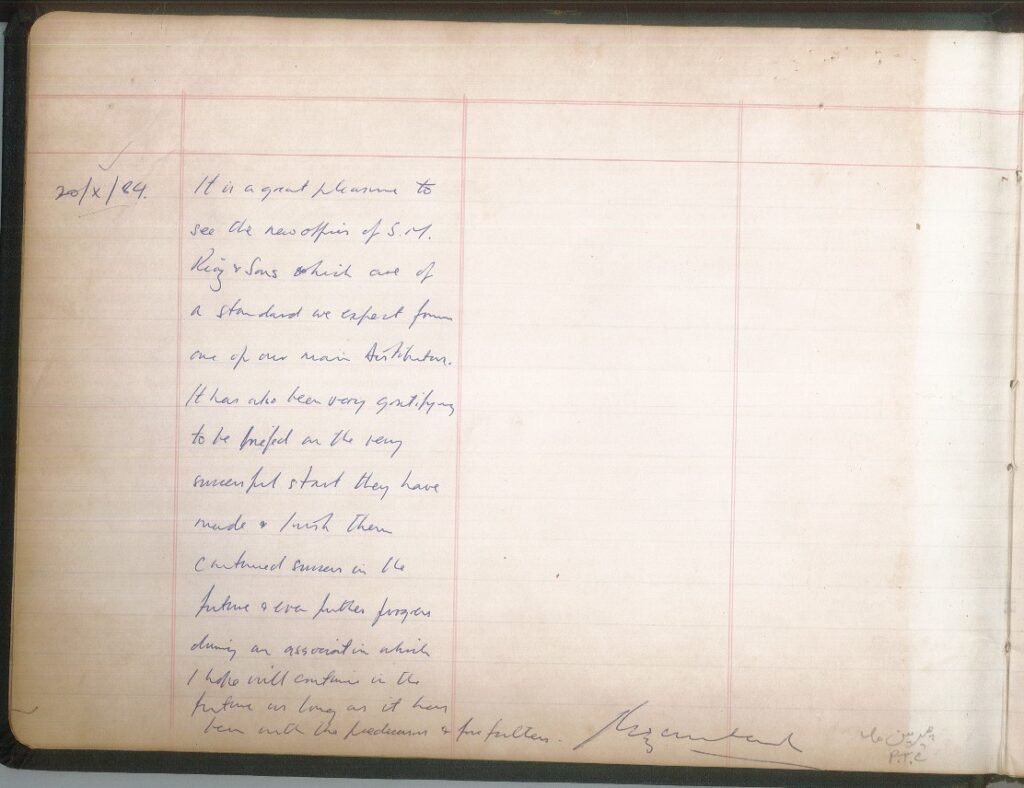 20/X/84.
It is a great pleasure to
see the new offices of S.M.
& Sons which are of
a standard we expect from
one of our main distributors.
It has also been very gratifying
to be briefed on the very
successful start they have
made & I wish them
continued success in the
future & even further progress
during an association which
I hope will continue in the
future as long as it has
been with the predecessors & forefathers.
P.T.C